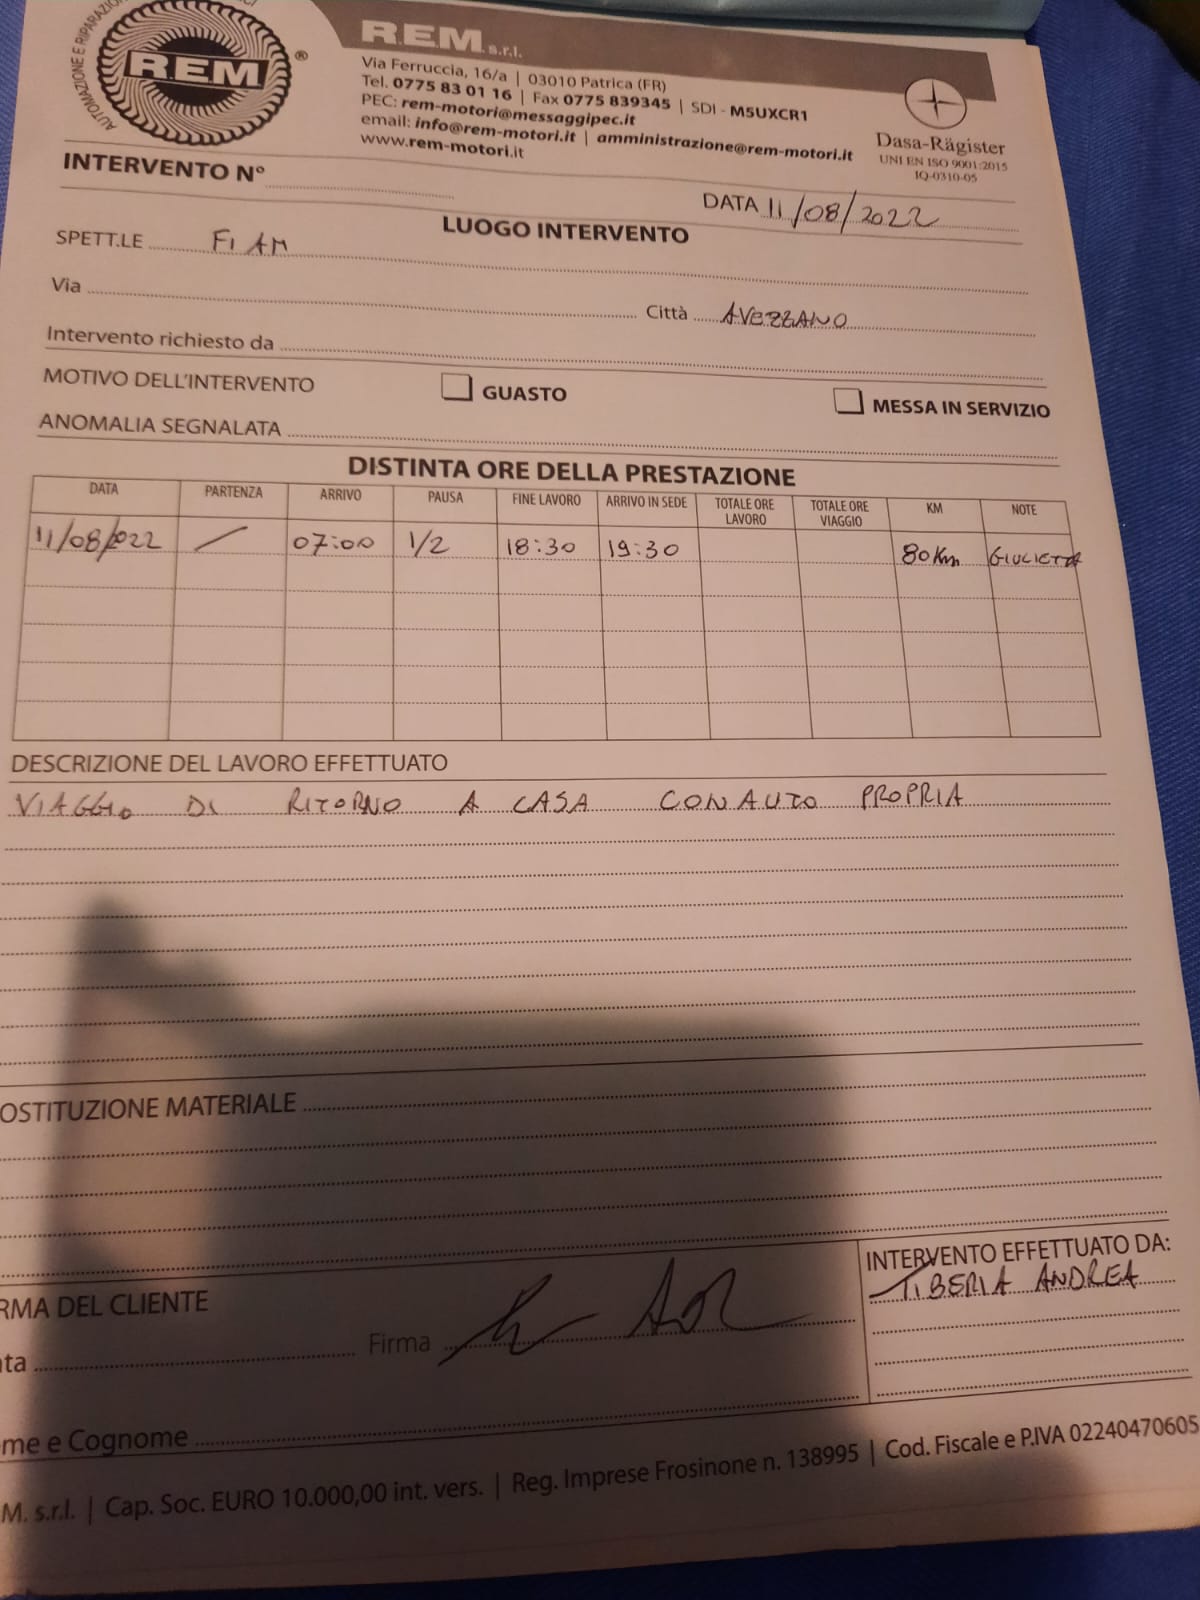 AUTOMAZIONE E RIPARAZION
R.E.M ®
R.E.M. s.r.l.
Via Ferruccia, 16/a | 03010 Patrica (FR)
Tel. 0775 83 01 16 | Fax 0775 839345 | SDI - M5UXCR1
PEC: rem-motori@messaggipec.it
email: info@rem-motori.it | amministrazione@rem-motori.it
www.rem-motori.it
Dasa-Rägister
UNI EN ISO 9001:2015
IQ-0310-05
INTERVENTO N°
DATA 11/08/2022
LUOGO INTERVENTO
SPETT.LE FIAM
Via Città AVEZZANO
Intervento richiesto da
MOTIVO DELL'INTERVENTO GUASTO MESSA IN SERVIZIO
ANOMALIA SEGNALATA
DISTINTA ORE DELLA PRESTAZIONE
DATA PARTENZA ARRIVO PAUSA FINE LAVORO ARRIVO IN SEDE TOTALE ORE LAVORO TOTALE ORE VIAGGIO KM NOTE
11/08/2022 / 07:00 1/2 18:30 19:30 80 Km GIULIETTA
DESCRIZIONE DEL LAVORO EFFETTUATO
VIAGGIO DI RITORNO A CASA CON AUTO PROPRIA
OSTITUZIONE MATERIALE
RMA DEL CLIENTE
INTERVENTO EFFETTUATO DA:
TIBERIA ANDREA
ta Firma
me e Cognome
M. s.r.l. | Cap. Soc. EURO 10.000,00 int. vers. | Reg. Imprese Frosinone n. 138995 | Cod. Fiscale e P.IVA 02240470605